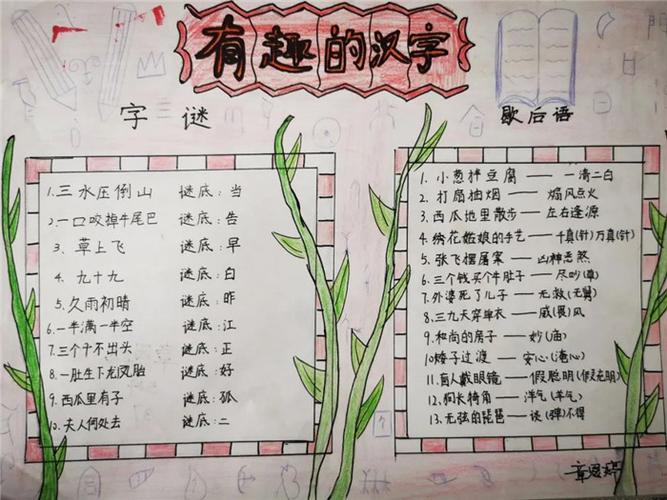 有趣的汉字
字谜
1.三水压倒山 谜底:当
2.一口咬掉牛尾巴 谜底:告
3.草上飞 谜底:早
4.九十九 谜底:白
5.久雨初晴 谜底:昨
6.一半满一半空 谜底:江
7.三个十不出头 谜底:正
8.一肚生下龙凤胎 谜底:好
9.西瓜里有子 谜底:孤
10.夫人何处去 谜底:二
歇后语
1.小葱拌豆腐——一清二白
2.打扇抽烟——煽风点火
3.西瓜地里散步——左右逢源
4.绣花姑娘的手艺——千真(针)万真(针)
5.张飞摆屠案——凶神恶煞
6.三个钱买个牛肚子——尽吵(草)
7.外婆死了儿子——无救(无舅)
8.三九天穿单衣——威(畏)风
9.和尚的房子——妙(庙)
10矮子过渡——安心(淹心)
11.盲人戴眼镜——假聪明(假充明)
12.狗长犄角——洋气(羊气)
13.无弦的琵琶——谈(弹)不得
章恩婷